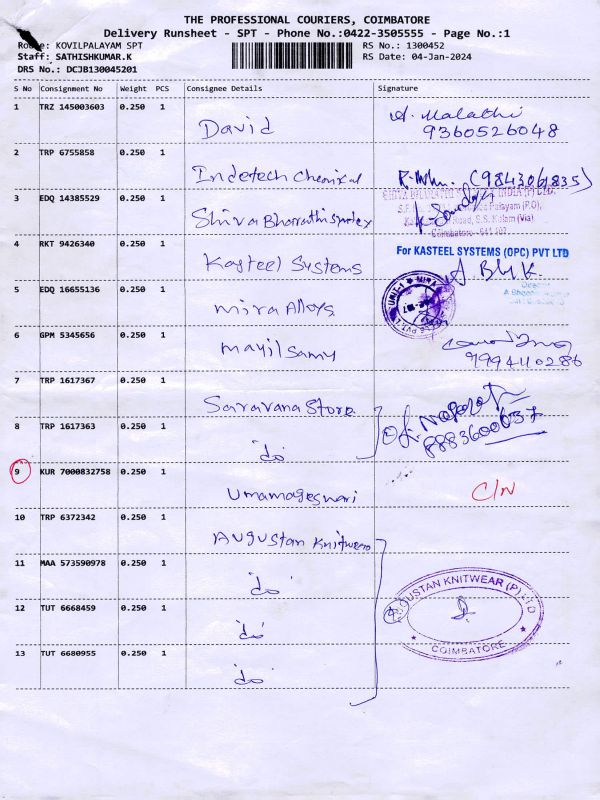 THE PROFESSIONAL COURIERS, COIMBATORE
Delivery Runsheet - SPT - Phone No.:0422-3505555 - Page No.:1
Route: KOVILPALAYAM SPT RS No.: 1300452
Staff: SATHISHKUMAR.K RS Date: 04-Jan-2024
DRS No.: DCJB130045201
S No Consignment No Weight PCS Consignee Details Signature
1 TRZ 145003603 0.250 1 David A. Malathi
9360526048
2 TRP 6755858 0.250 1 Indetech Chemikal (9843061835)
3 EDQ 14385529 0.250 1 Shiva Bharathi
Coimbatore - 641 107
4 RKT 9426340 0.250 1 Kasteel Systems For KASTEEL SYSTEMS (OPC) PVT LTD
Director
5 EDQ 16655136 0.250 1 Mira Alloys UNIT-1 MIRA
6 GPM 5345656 0.250 1 Mayilsamy
9994110286
7 TRP 1617367 0.250 1 Saravana Store
8 TRP 1617363 0.250 1 do 8883600637
9 KUR 7000832758 0.250 1 Umamageswari C/N
10 TRP 6372342 0.250 1 Augustan Knitwear
11 MAA 573590978 0.250 1 do
12 TUT 6668459 0.250 1 do KNITWEAR (P) LTD
COIMBATORE
13 TUT 6680955 0.250 1 do